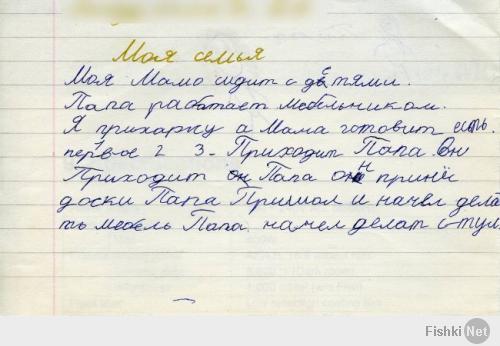 Моя семья
Моя Мама сидит с детями.
Папа работает мебельником.
Я прихарку а Мама готовит есть.
первое 2 3. Приходит Папа. Он
Приходит он Папа он приніс
доски Папа Пришол и начел дела
ть мебель Папа. начел делат стул.
Fishki.Net